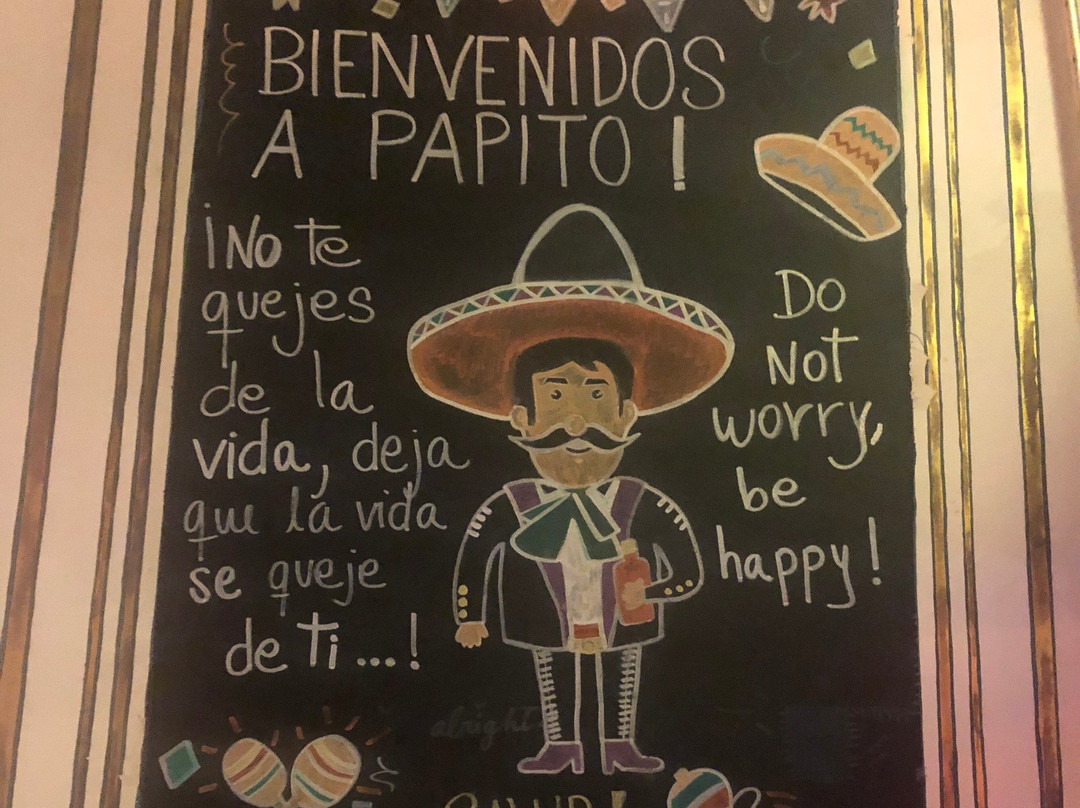 BIENVENIDOS
A PAPITO!
¡No te
quejes
de la
vida, deja
que la vida
se queje
de ti...!
Do
Not
worry,
be
happy!
alright